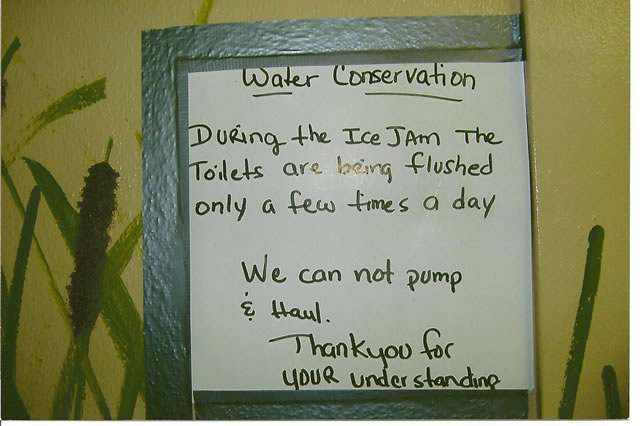 Water Conservation
During the Ice Jam The
Toilets are being flushed
only a few times a day
We can not pump
& Haul.
Thankyou for
YOUR understanding